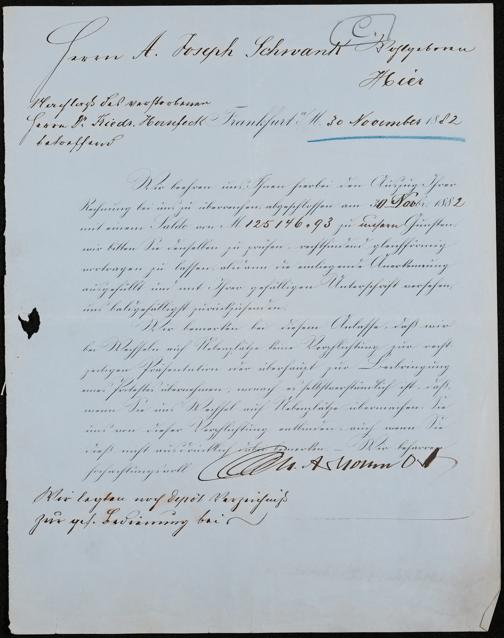 C.
Herrn A. Joseph Schwank Wohlgeboren
Hier
Nachlaß des verstorbenen
Herrn Dr Friedr.
betreffend
Frankfurt a/M. 30 November 1882
Wir beehren uns Ihnen hierbei den Auszug Ihrer
Rechnung bei uns zu überreichen abgeschlossen am 30 Nov. 1882
mit einem Saldo von M 125146.93 zu unsern Gunsten
wir bitten Sie denselben zu prüfen, rechtfindend gleichförmig
vortragen zu lassen, alsdann die einliegende Anerkennung
ausgefüllt und mit Ihrer gefälligen Unterschrift versehen,
uns baldgefälligst zurückzusenden.
Wir bemerken bei diesem Anlasse, daß wir
bei Wechseln auf Nebenplätze keine Verpflichtung zur recht-
zeitigen Präsentation oder überhaupt zur Beibringung
eines Protestes übernehmen, wonach es selbstverständlich ist, daß,
wenn Sie uns Wechsel auf Nebenplätze übermachen, Sie
uns von dieser Verpflichtung entbinden, auch wenn Sie
dieß nicht ausdrücklich bemerken. Wir beharren
hochachtungsvoll
Wir legten noch Depôt Verzeichniß
zur gef. Bedienung bei